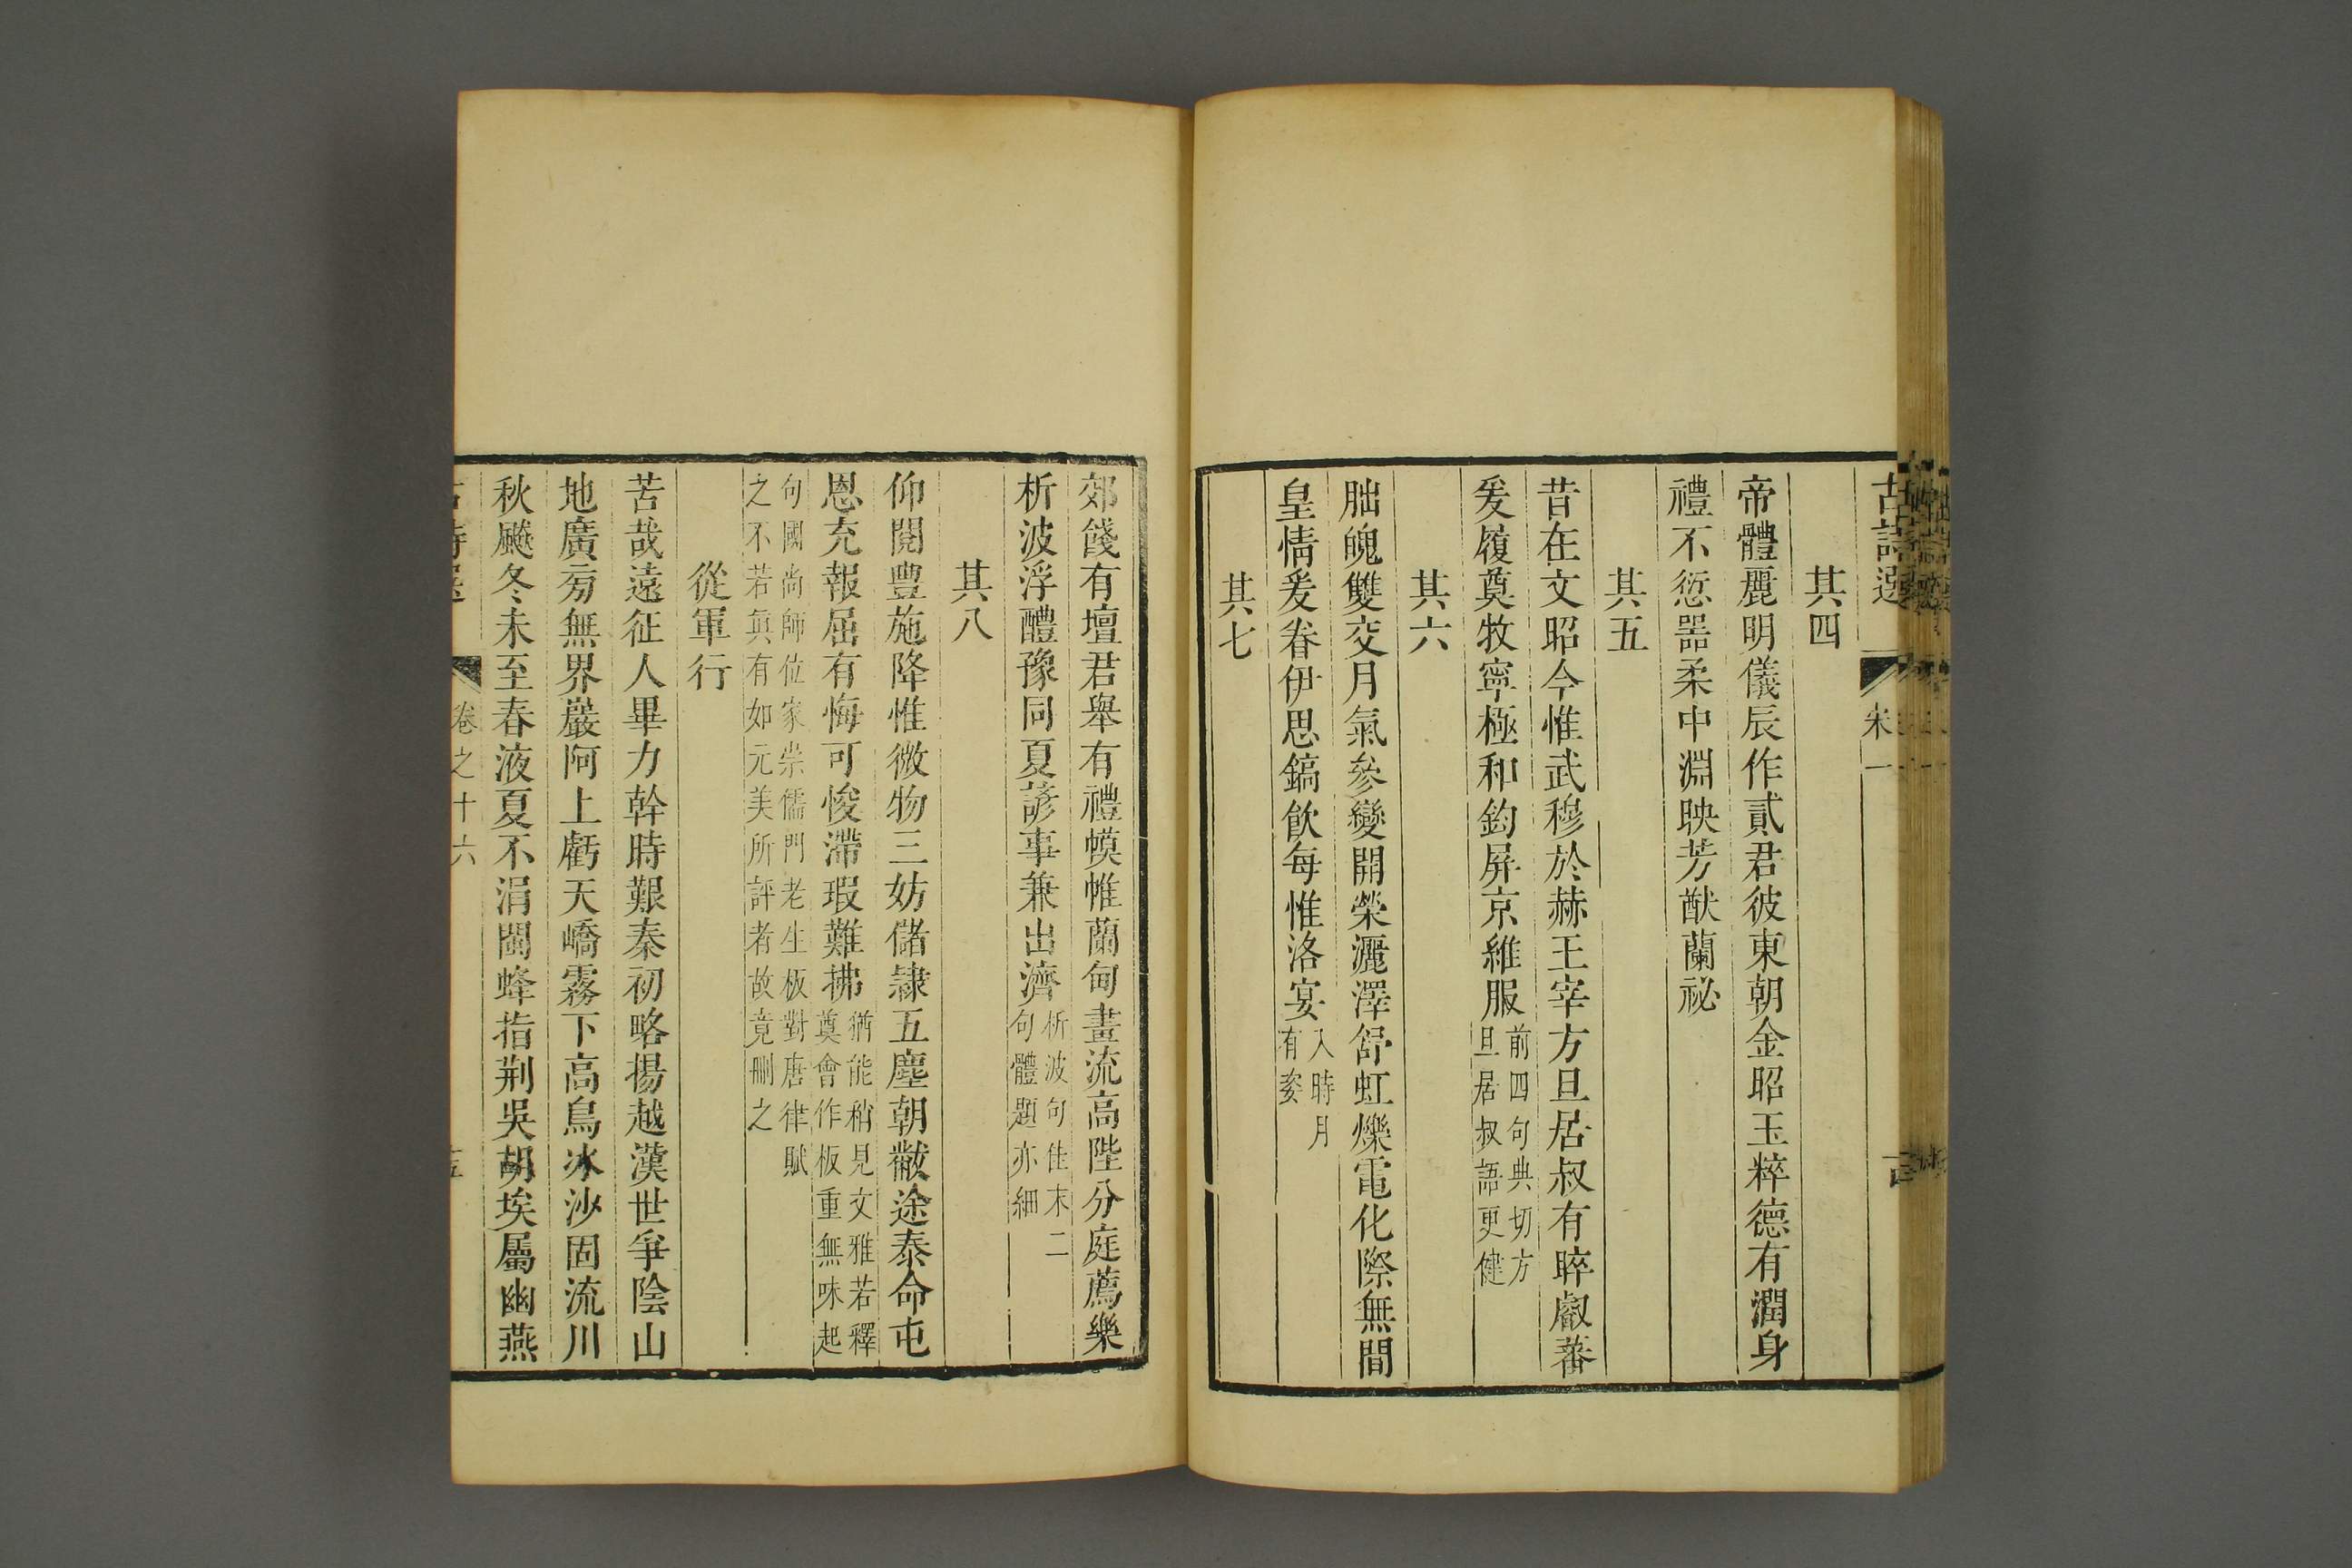 古詩選
宋一
其四
帝體麗明儀辰作貳君彼東朝金昭玉粹德有潤身
禮不愆噐柔中淵映芳猷蘭祕
其五
昔在文昭今惟武穆於赫王宰方旦居叔有睟叡蕃
爰履奠牧寧極和鈞屏京維服
前四句典切方
旦居叔語更健
其六
朏魄雙交月氣參變開榮灑澤舒虹爍電化際無間
皇情爰眷伊思鎬飲每惟洛宴
入時月
有姿
其七
郊餞有壇君舉有禮幙帷蘭甸畫流高陛分庭薦樂
析波浮醴豫同夏諺事兼出濟
析波句佳末二
句體題亦細
其八
仰閱豐施降惟微物三妨儲隷五塵朝黻途泰命屯
恩充報屈有悔可悛滯瑕難拂
猶能稍見文雅若釋
奠會作板重無味起
句國尚師位家崇儒門老生板對唐律賦
之不若與有如元美所評者故竟刪之
從軍行
苦哉遠征人畢力幹時艱秦初略揚越漢世爭陰山
地廣㫄無界巖阿上虧天嶠霧下高鳥冰沙固流川
秋飈冬未至春液夏不涓閩蜂指荆吳胡埃屬幽燕
古詩選
卷之十六